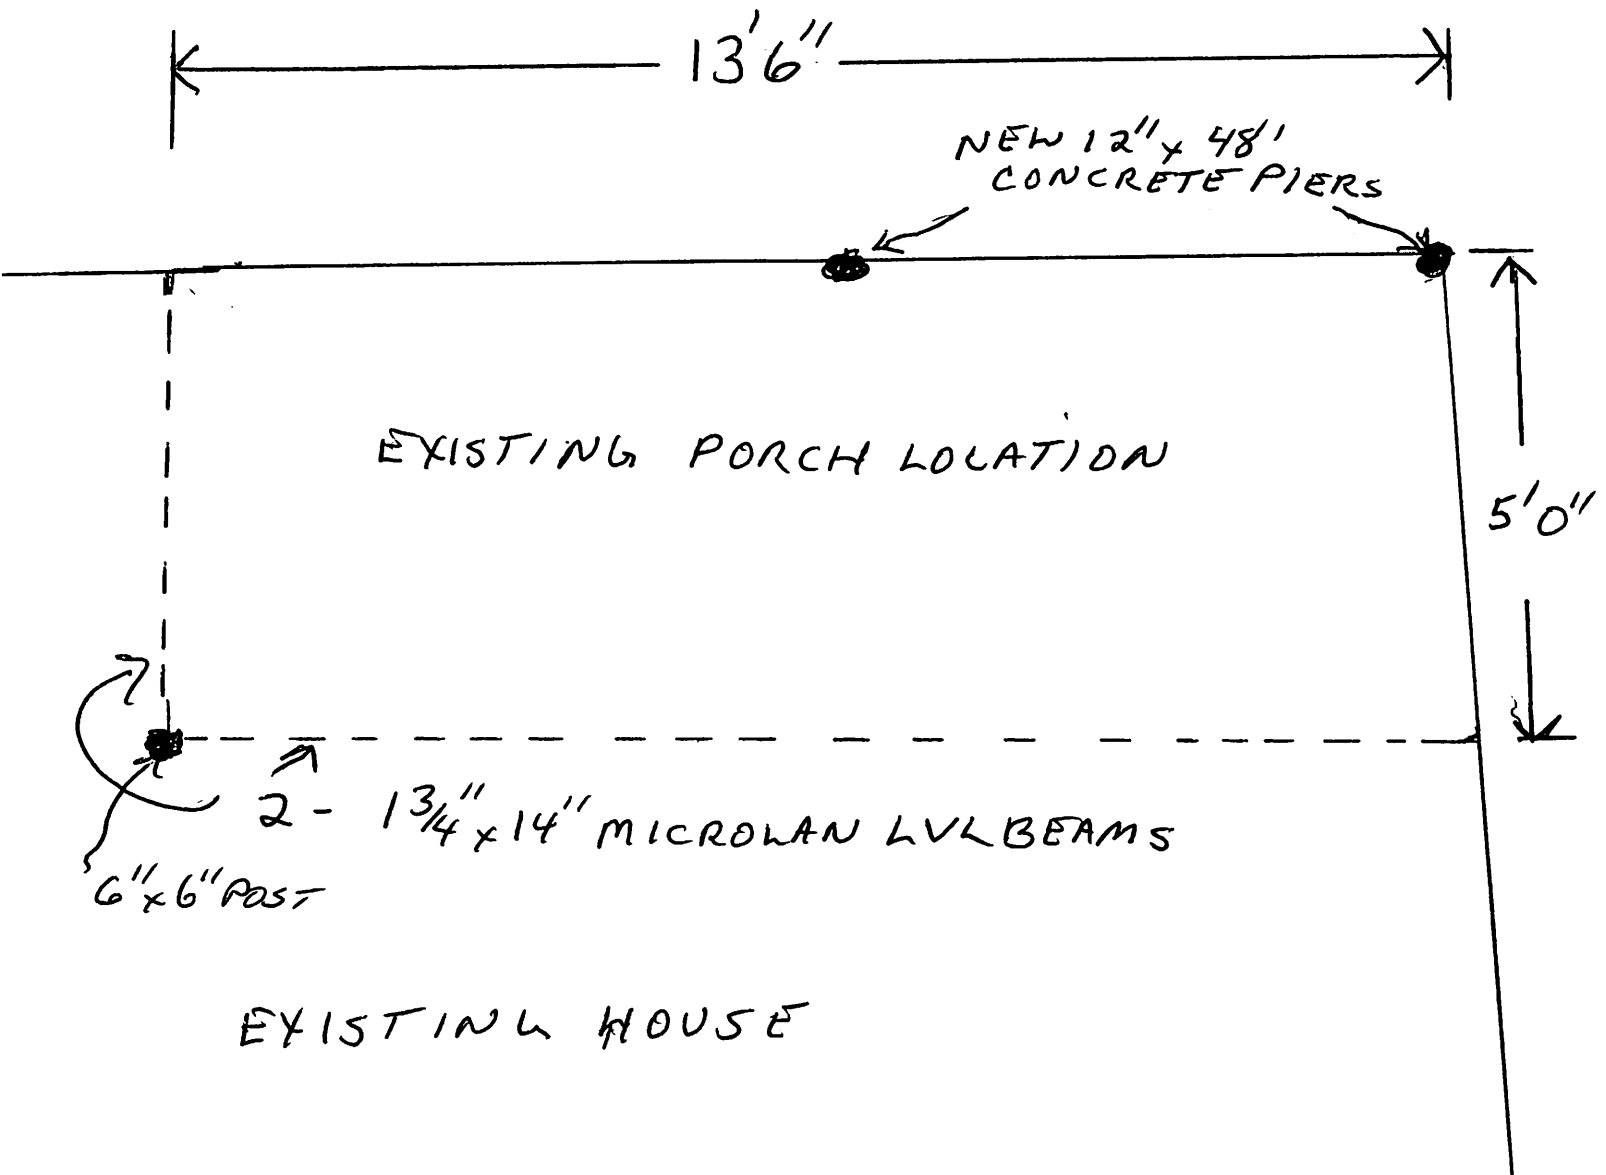 13'6"
NEW 12" x 48"
CONCRETE PIERS
EXISTING PORCH LOCATION
5'0"
2 - 1 3/4" x 14" MICROLAN LVL BEAMS
6" x 6" POST
EXISTING HOUSE